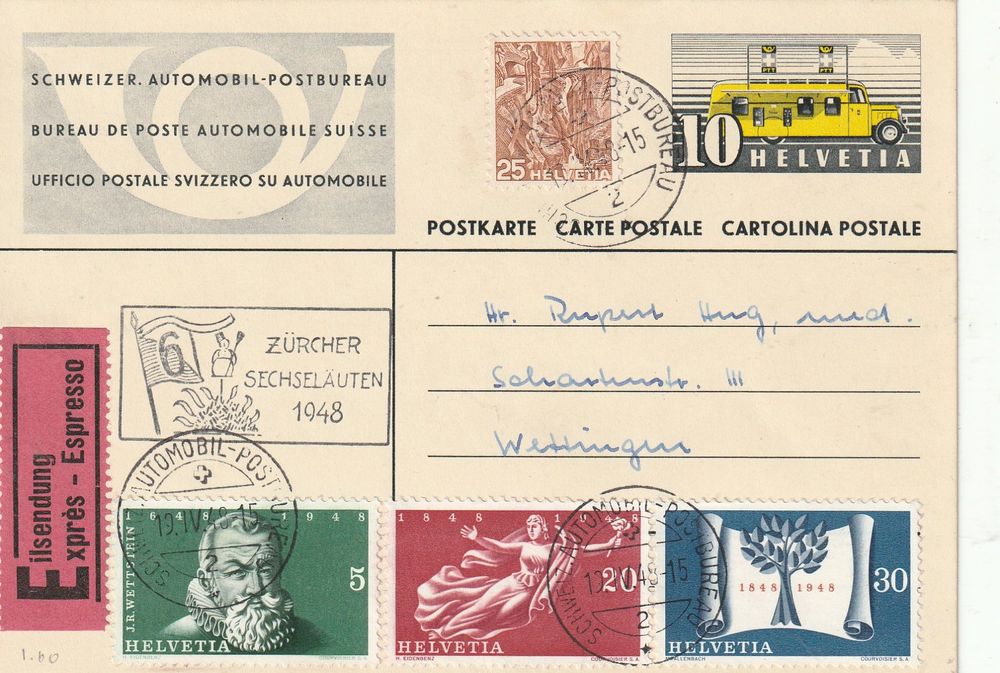 SCHWEIZER. AUTOMOBIL-POSTBUREAU
BUREAU DE POSTE AUTOMOBILE SUISSE
UFFICIO POSTALE SVIZZERO SU AUTOMOBILE
25 HELVETIA
PTT PTT
10 HELVETIA
POSTKARTE CARTE POSTALE CARTOLINA POSTALE
6
ZÜRCHER
SECHSELÄUTEN
1948
Hr. Rupert Hug, med.
III
Wettingen
Eilsendung
Exprès - Espresso
AUTOMOBIL-POSTBUREAU
19.IV.48-15
2
1648 1948
J.R. WETTSTEIN
5
HELVETIA
H. EIDENBENZ COURVOISIER S.A.
1848 1948
20
HELVETIA
H. EIDENBENZ COURVOISIER S.A.
SCHWEIZ. AUTOMOBIL-POSTBUREAU
19.IV.48-15
2
1848 1948
30
HELVETIA
COURVOISIER S.A.
1.60